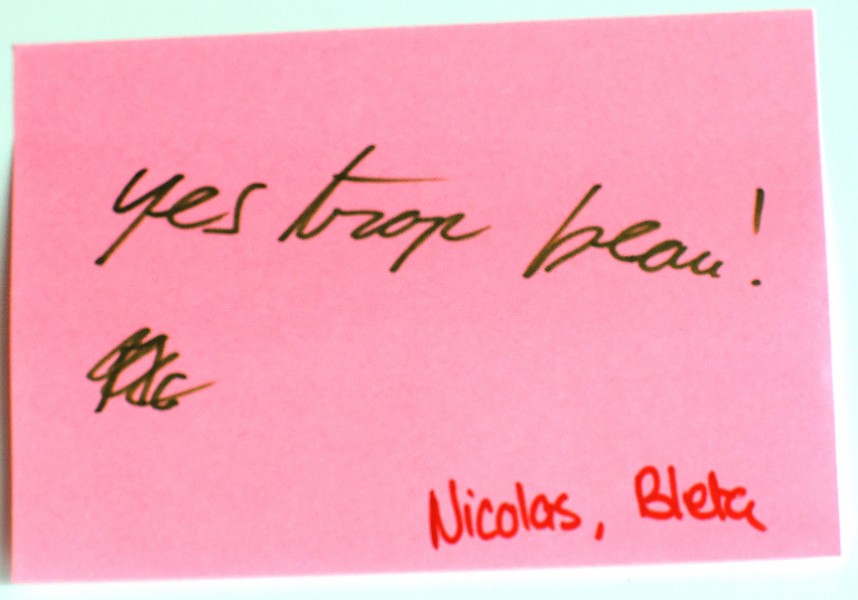 yes trop beau!
Nicolas, Bleta